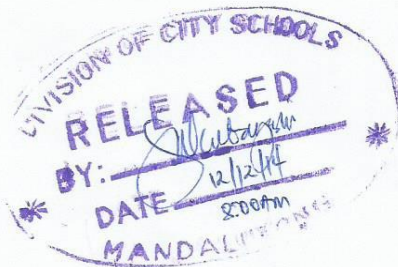 DIVISION OF CITY SCHOOLS
RELEASED
BY:
DATE 12/12/14
8:00AM
MANDALUYONG